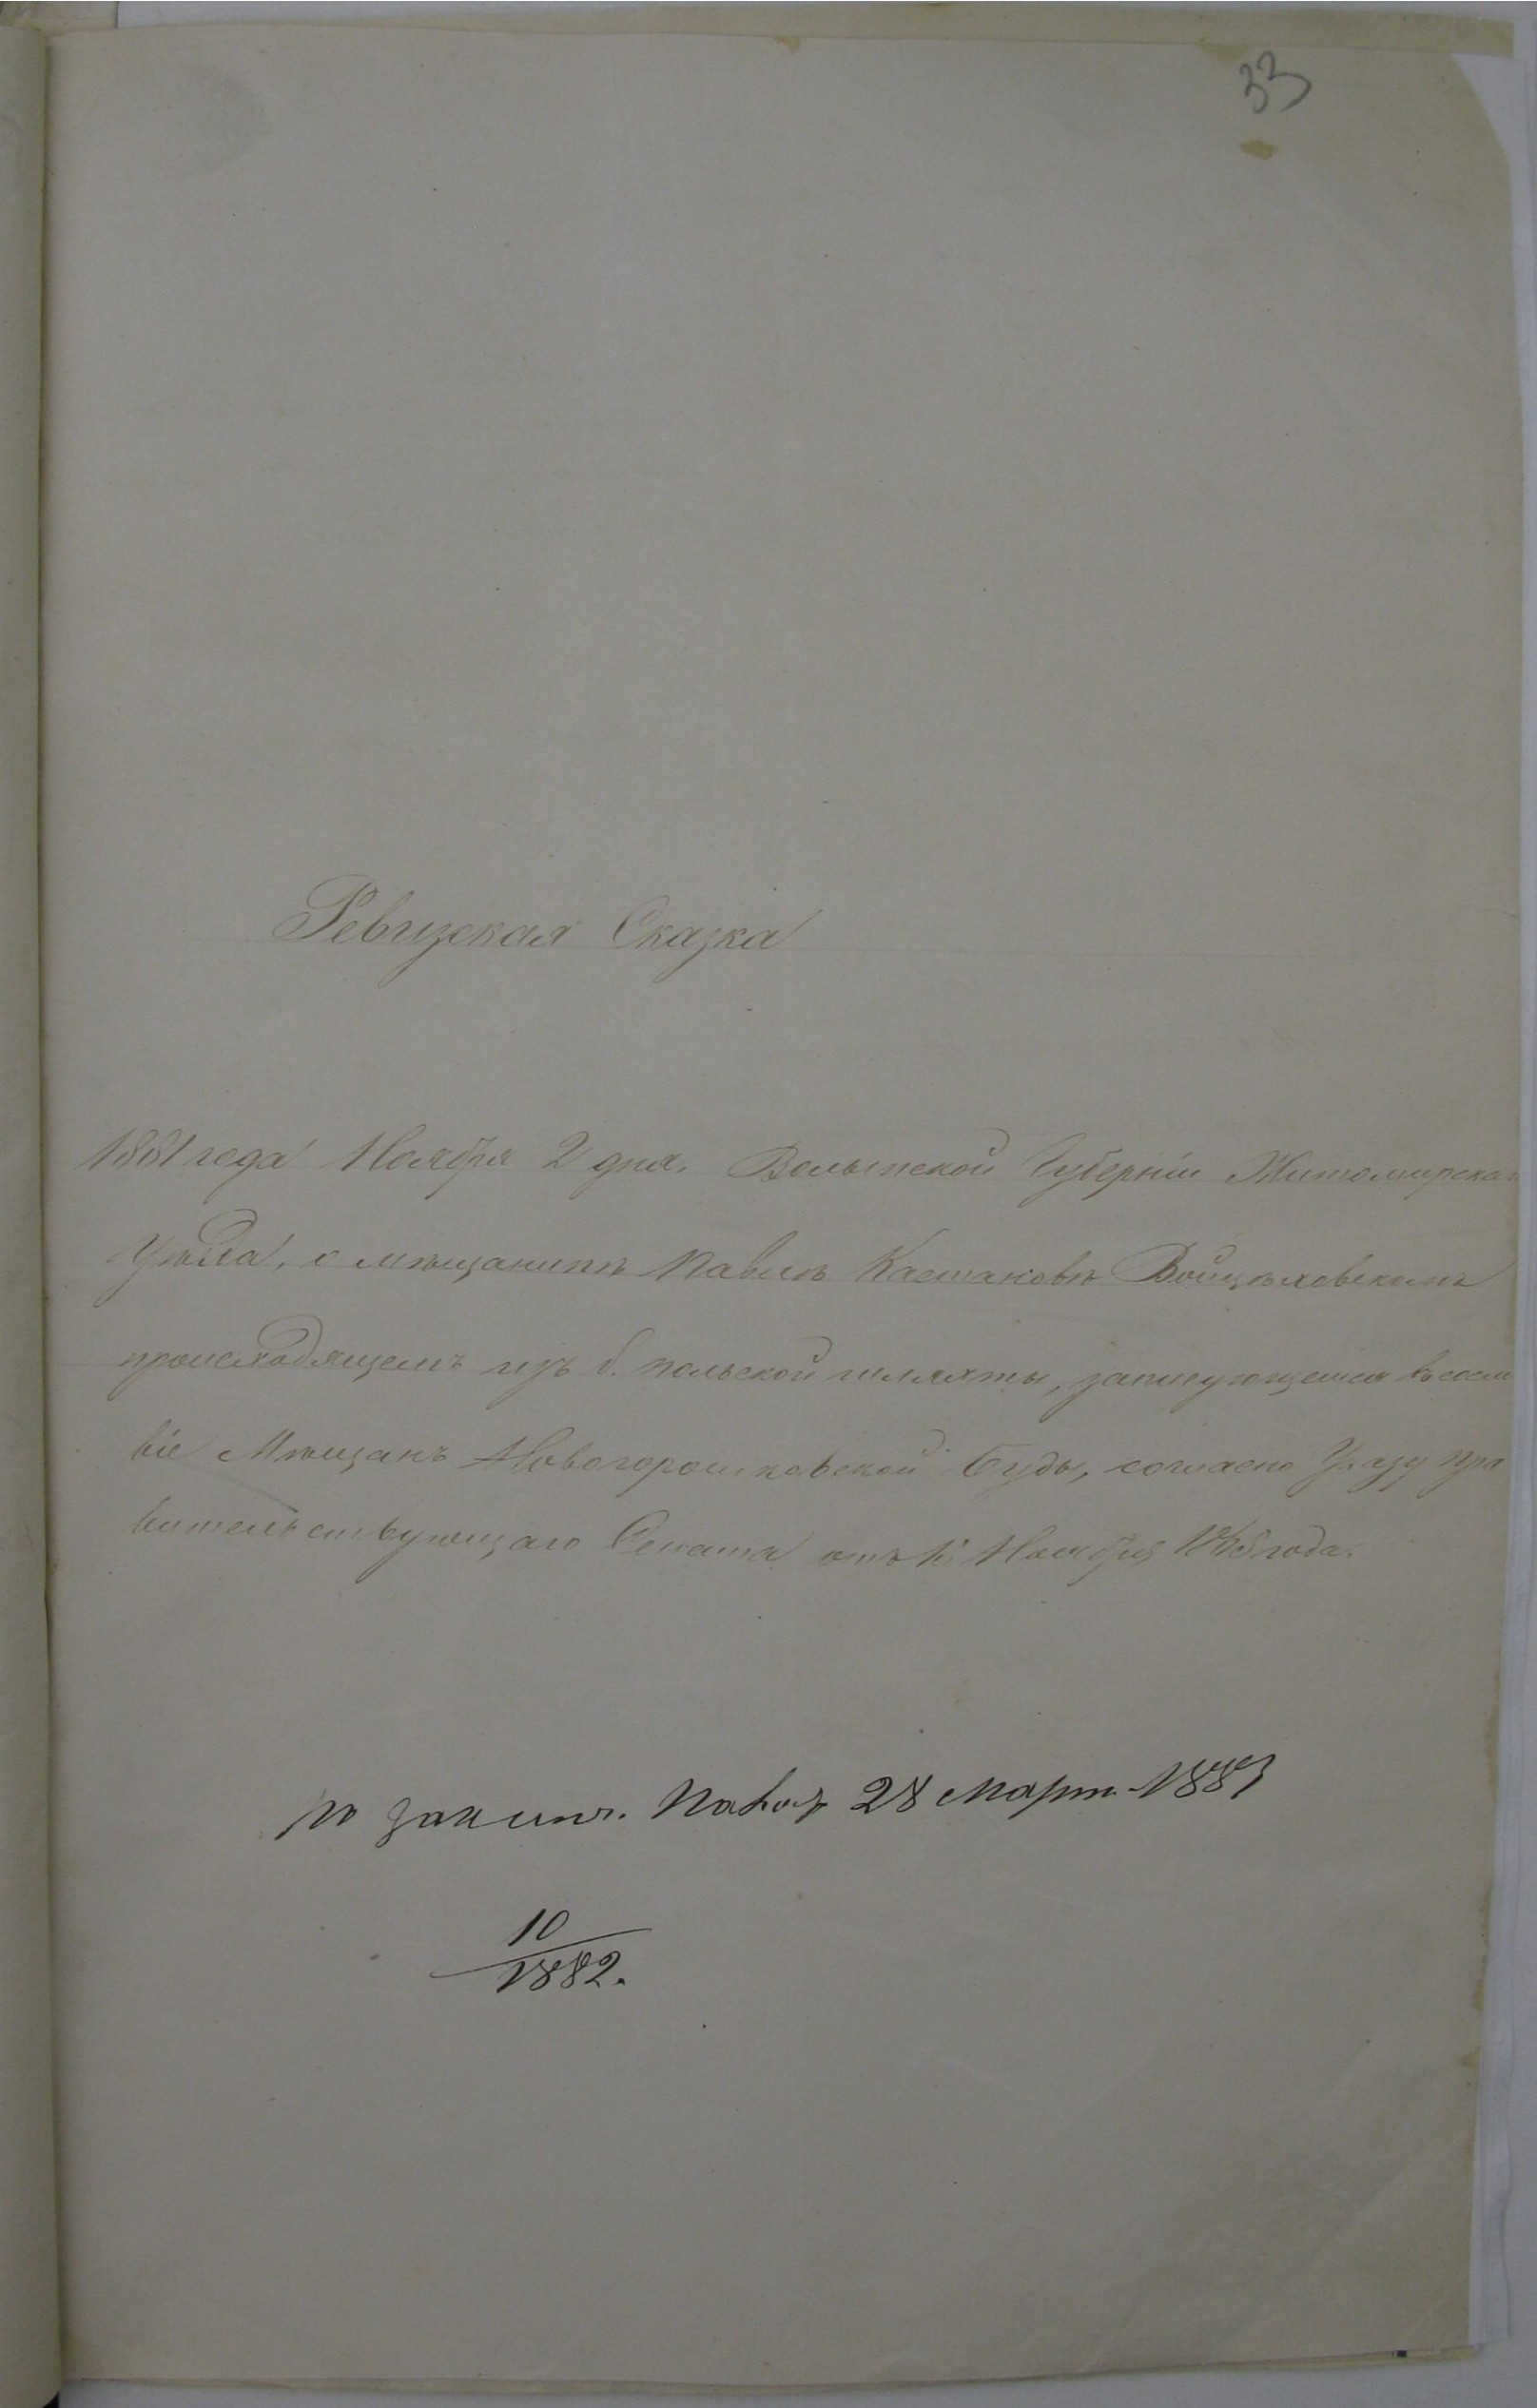 33
Ревизская Сказка
1881 года Ноября 2 дня. Волынской Губерніи Житомирскаго
Уѣзда, о мѣщанинѣ Павлѣ Каетановѣ Войцѣховскомъ
происходящемъ изъ б. польской шляхты, записующемся въ сосло
віе Мѣщанъ Новогорошковской Буды, согласно Указу Пра
вительствующаго Сената отъ Ноября года.
по 28 Март. 1883
10
1882.